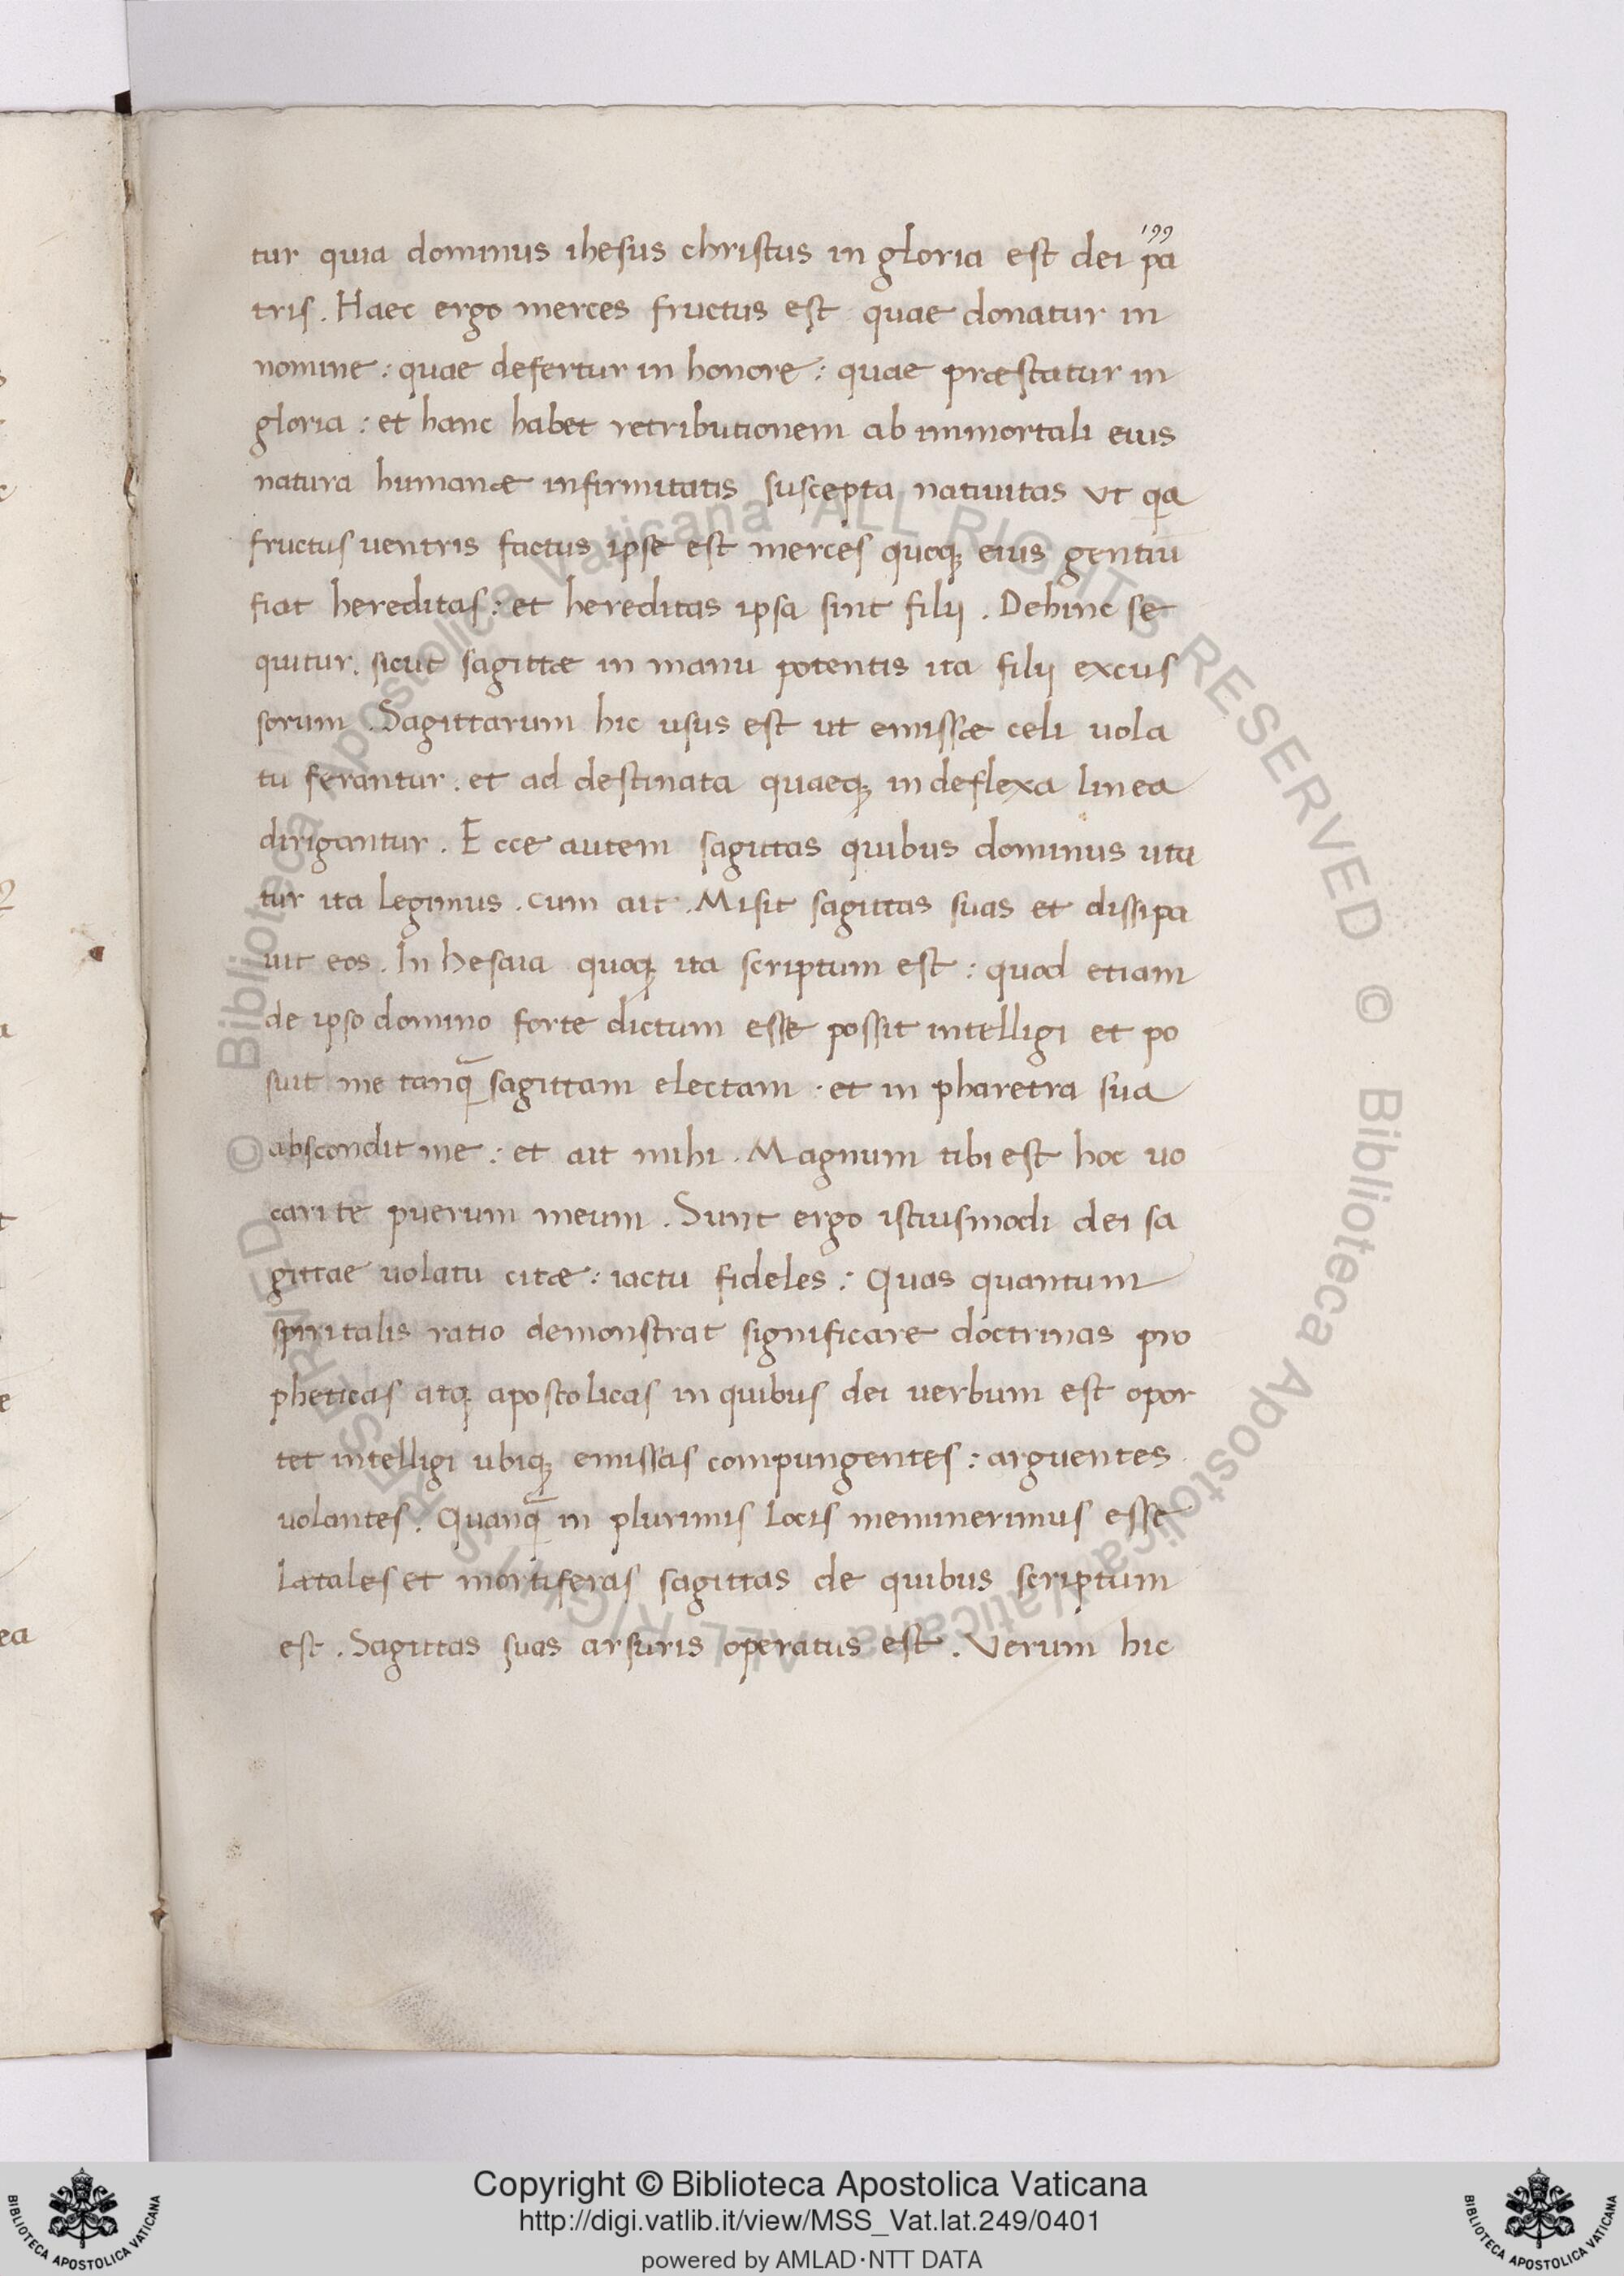 199
tur quia dominus ihesus christus in gloria est dei pa
tris. Haec ergo merces fructus est quae donatur in
nomine: quae defertur in honore: quae præstatur in
gloria: et hanc habet retributionem ab immortali eius
natura humanæ infirmitatis suscepta natiuitas vt qa
fructus uentris factus ipse est merces quoq; eius gentiū
fiat hereditas: et hereditas ipsa sint filij. Dehinc se
quitur. sicut sagittæ in manu potentis ita filij excus
sorum. Sagittarum hic usus est ut emissæ celi uola
tu ferantur. et ad destinata quaeq; indeflexa linea
dirigantur. Ecce autem sagittas quibus dominus uta
tur ita legimus. cum ait. Misit sagittas suas et dissipa
uit eos. In hesaia quoq; ita scriptum est: quod etiam
de ipso domino forte dictum esse possit intelligi et po
suit me tanq̄ sagittam electam. et in pharetra sua
abscondit me: et ait mihi. Magnum tibi est hoc uo
cari te puerum meum. Sunt ergo istiusmodi dei sa
gittae uolatu citæ: iactu fideles: Quas quantum
spiritalis ratio demonstrat significare doctrinas pro
pheticas atq; apostolicas in quibus dei uerbum est opor
tet intelligi ubiq; emissas compungentes: arguentes
uolantes. Quanq̄ in plurimis locis meminerimus esse
Lætales et mortiferas sagittas de quibus scriptum
est. Sagittas suas arsuris operatus est. Verum hic
© Biblioteca Apostolica Vaticana ALL RIGHTS RESERVED © Biblioteca Apostolica Vaticana ALL RIGHTS RESERVED
Copyright © Biblioteca Apostolica Vaticana
http://digi.vatlib.it/view/MSS_Vat.lat.249/0401
powered by AMLAD·NTT DATA
BIBLIOTECA APOSTOLICA VATICANA
BIBLIOTECA APOSTOLICA VATICANA